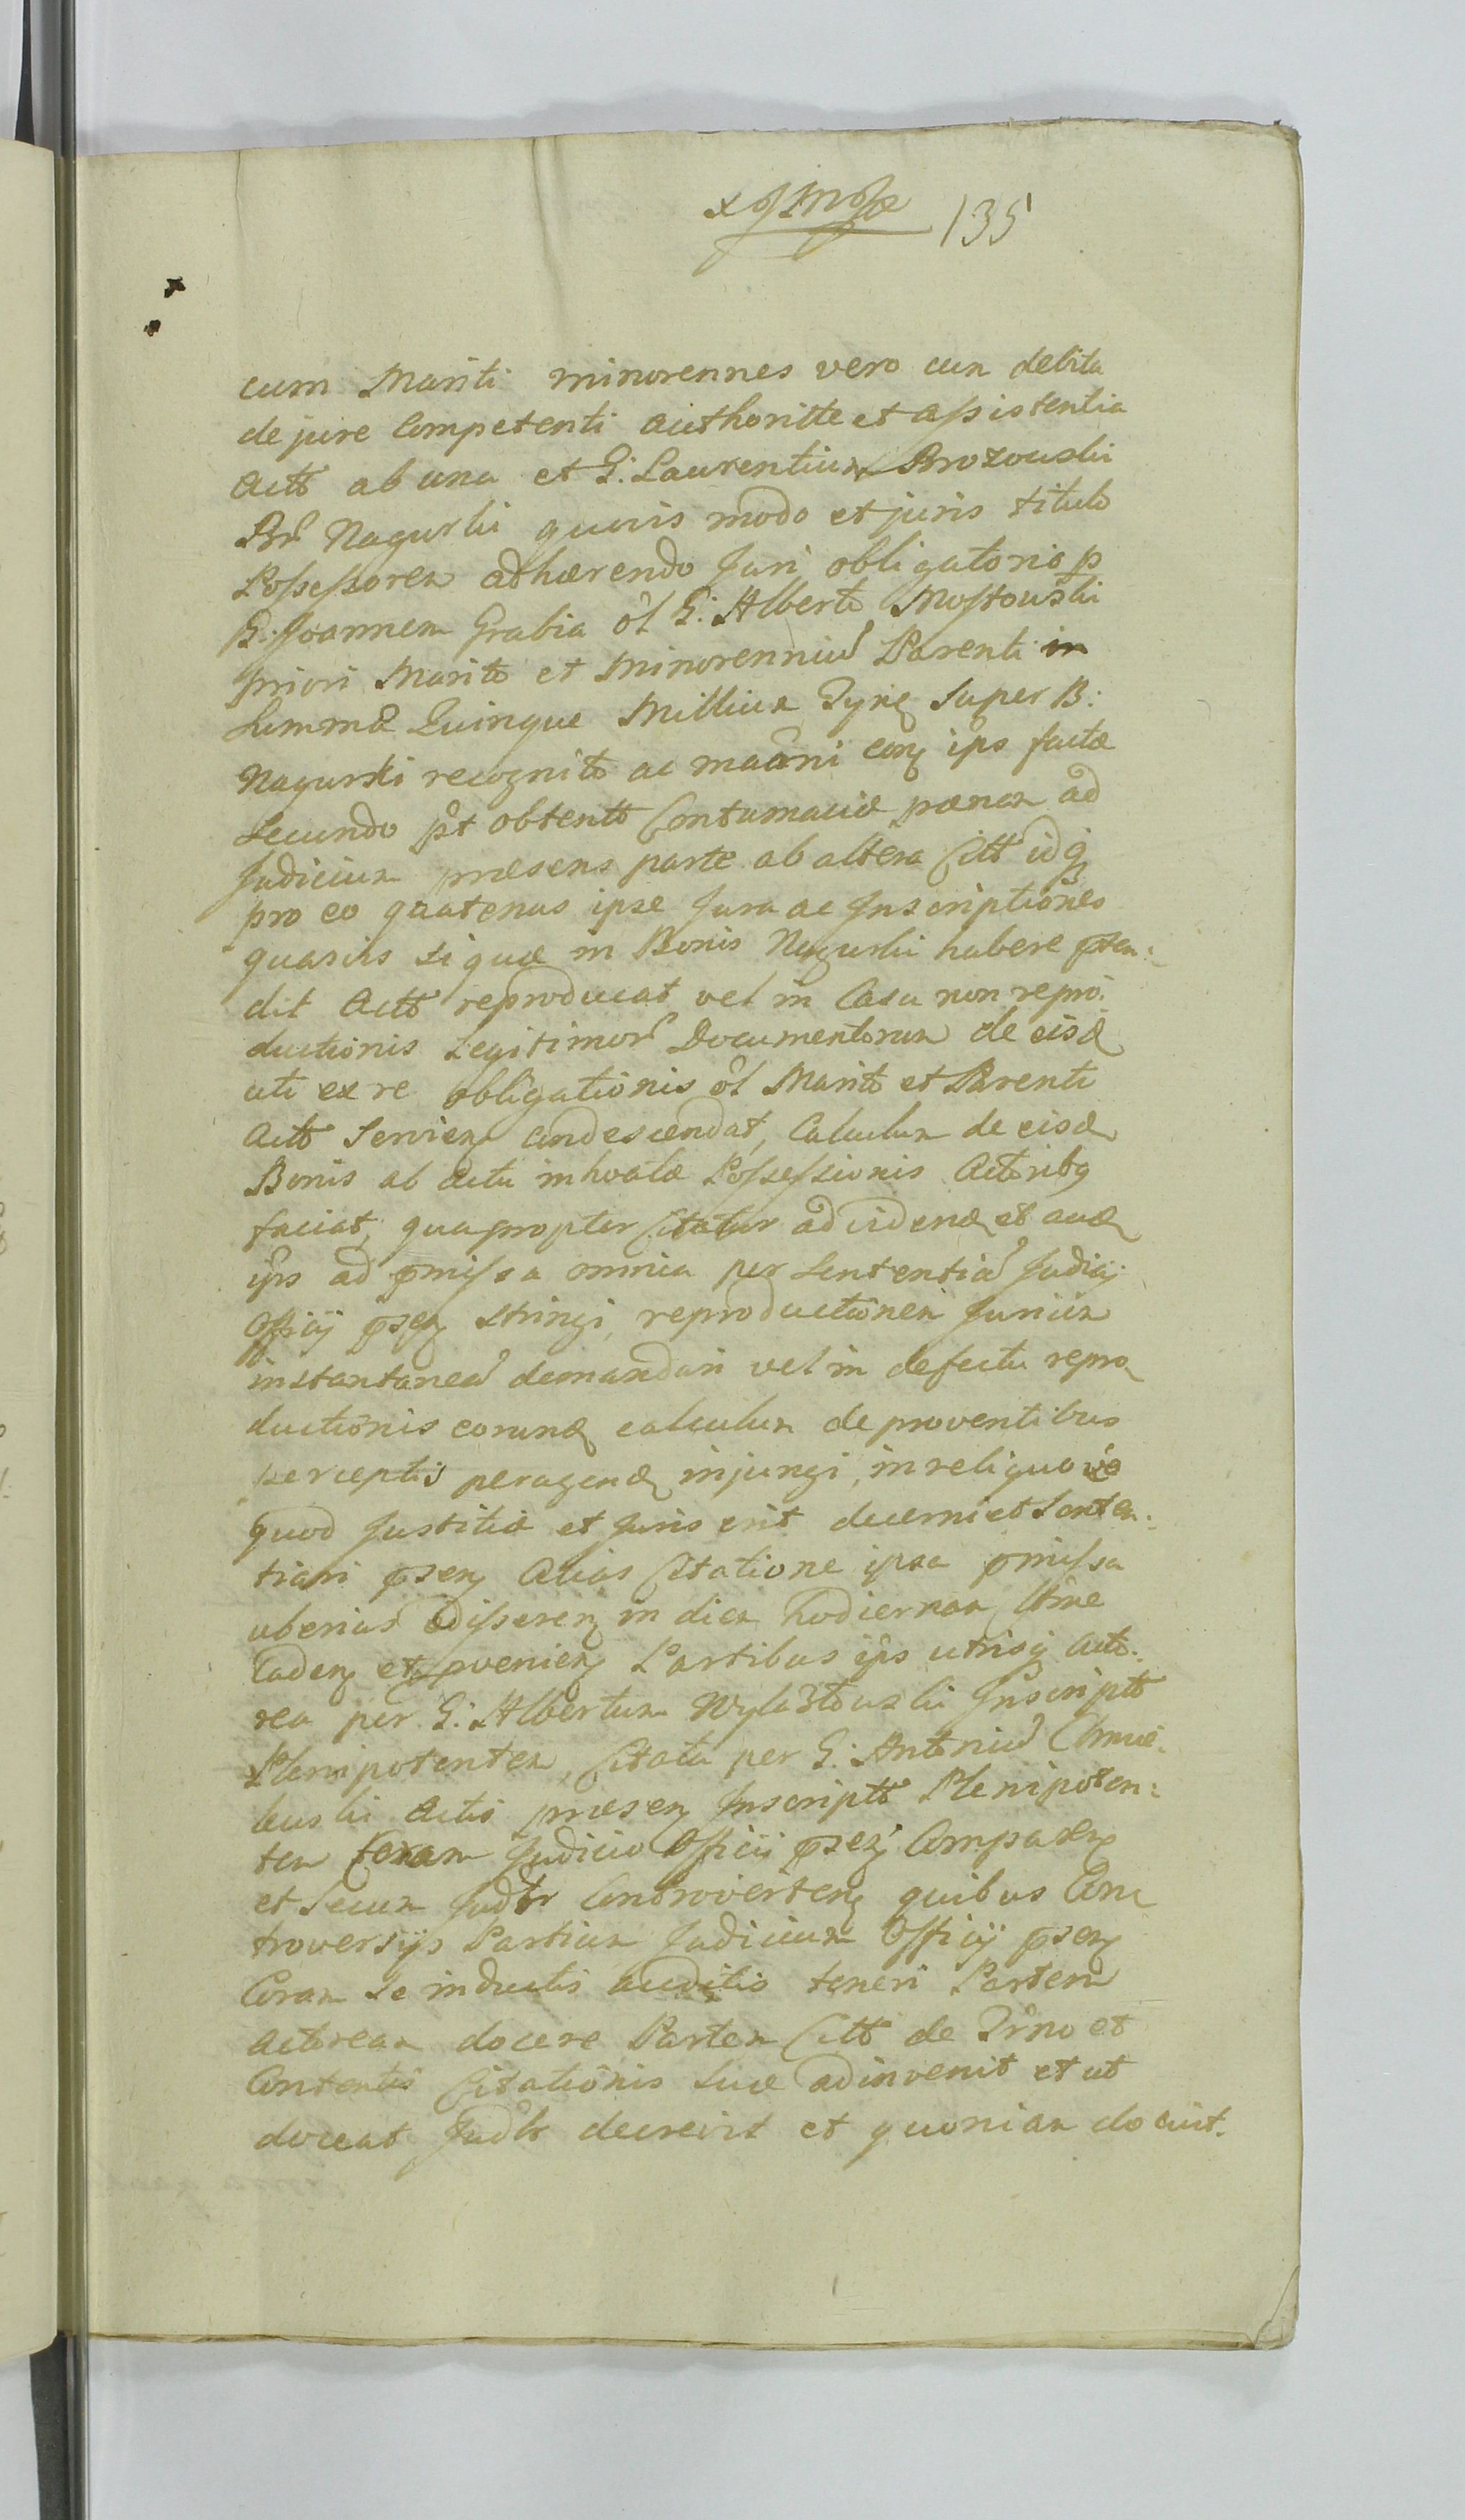 135
cum Mariti minorennes vero cum debita
de jure Competenti authoritte et assistentia
Actt ab una et G: Laurentium Brozouski
Br̃ Nagurki quovis modo et juris titulo
Possessorem adhærendo Juri obligatorio p
G: Joannem Grabia ol̃ G: Alberto Mostouski
priori Marito et Minorenniu Parenti in
Summa Quinque Millium Tynf Super B:
Nagurki recognito ac ip̃s factæ
Secundo p̃t obtentt Contumaciæ pænam ad
Judicium præsens parte ab altera Citt idq
pro eo quatenus ipse Jura ac Inscriptiones
quasvis si quæ in Bonis Nagurki habere pten:
dit Actt reproducat vel in Casu non repro:
ductionis Legitimor Documentorum de eisd
uti ex re obligationis ol̃ Marito et Parenti
Actt Servien condescendat, Calculum de eisd
Bonis ab actu Possessionis Actoribq
faciat, quapropter Citatur ad vidend et aud
ip̃s ad pmissa omnia per Sententia Judicij
Officij psen stringi, reproductionem Jurium
instantanea demandari vel in defectu repro
ductionis eorund calculum de proventibus
perceptis peragend injungi, in reliquo vo
quod Justitiæ et Juris erit decerni et Senten:
tiari psen Alias Citatione ipsa pmissa
uberius disseren in diem hodiernam
Caden et pvenien Partibus ip̃s utrisq Acto:
rea per G: Albertum Inscriptt
Plenipotentem, Citata per G: Antoniu Chmie:
leuski Actis præsen Inscriptt Plenipoten:
tem Coram Judicio Officii psen Comparen
et Secum Judr Controverten quibus Con
troversijs Partium Judicium Officij psen
Coram Se inductis auditis teneri Partem
Actoream docere Partem Citt de Tr̃no et
Contentis Citationis Suæ adinvenit et ut
doceat Judr decrevit et quoniam docuit.